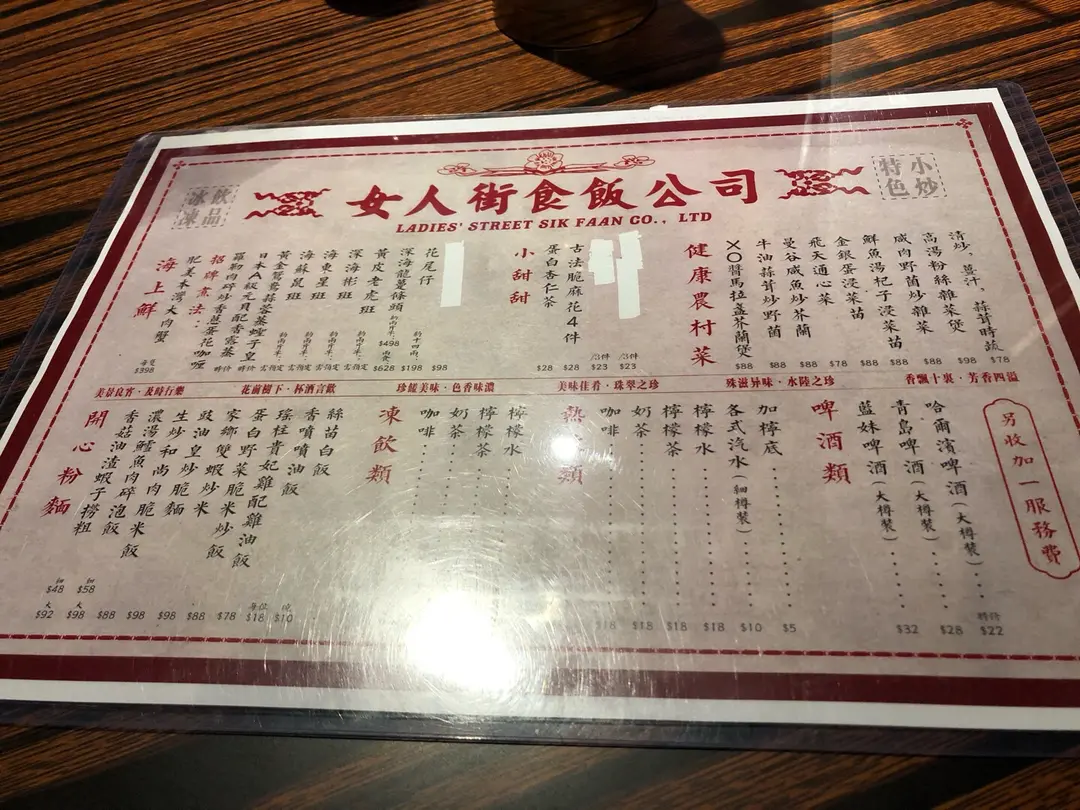 飲品
冰凍
女人街食飯公司
LADIES' STREET SIK FAAN CO., LTD
小炒
特色
清炒，薑汁，蒜茸時蔬 $78
高湯粉絲雜菜煲 $98
咸肉野菌炒雜菜 $88
鮮魚湯杞子浸菜苗 $88
金銀蛋浸菜苗 $88
飛天通心菜 $78
曼谷咸魚炒芥蘭 $88
牛油蒜茸炒野菌 $88
XO醬馬拉盞芥蘭煲 $88
健康農村菜
/3件 $23
/3件 $23
古法脆麻花4件 $28
蛋白杏仁茶 $28
小甜甜
花尾仔 $98
深海龍躉條頭 $198
黃皮老虎班 $628
$498
深海彬班
海東星班
海蘇鼠班
黃金鴛鴦蒜蓉蒸蟶子皇
日本A級元貝配香露蒸
羅勒肉碎炒香蔥蛋花咖喱
招牌煮法：
肥美本灣大肉蟹 每隻 $398
海上鮮
美景良宵·及時行樂
花前樹下·杯酒言歡
珍饈美味·色香味濃
美味佳肴·珠翠之珍
殊滋异味·水陸之珍
香飄十裏·芳香四溢
另收加一服務費
哈爾濱啤酒（大樽裝） 特價 $22
青島啤酒（大樽裝） $28
藍妹啤酒（大樽裝） $32
啤酒類
加檸底 $5
各式汽水（細樽裝） $10
檸檬水 $18
檸檬茶 $18
奶茶 $18
咖啡 $18
熱
類
檸檬水
檸檬茶
奶茶
咖啡
凍飲類
絲苗白飯 $10
香噴噴油飯 每位 $18
瑤柱貴妃雞配雞油飯
蛋白野菜脆米炒飯
家鄉雙蝦炒米 $78
豉油皇炒麵 $88
生炒和尚肉脆米飯 $98
濃湯鱸魚肉碎泡飯 $98
香菇油渣蝦子撈粗 $88
細 $58
大 $98
細 $48
大 $92
開心粉麵